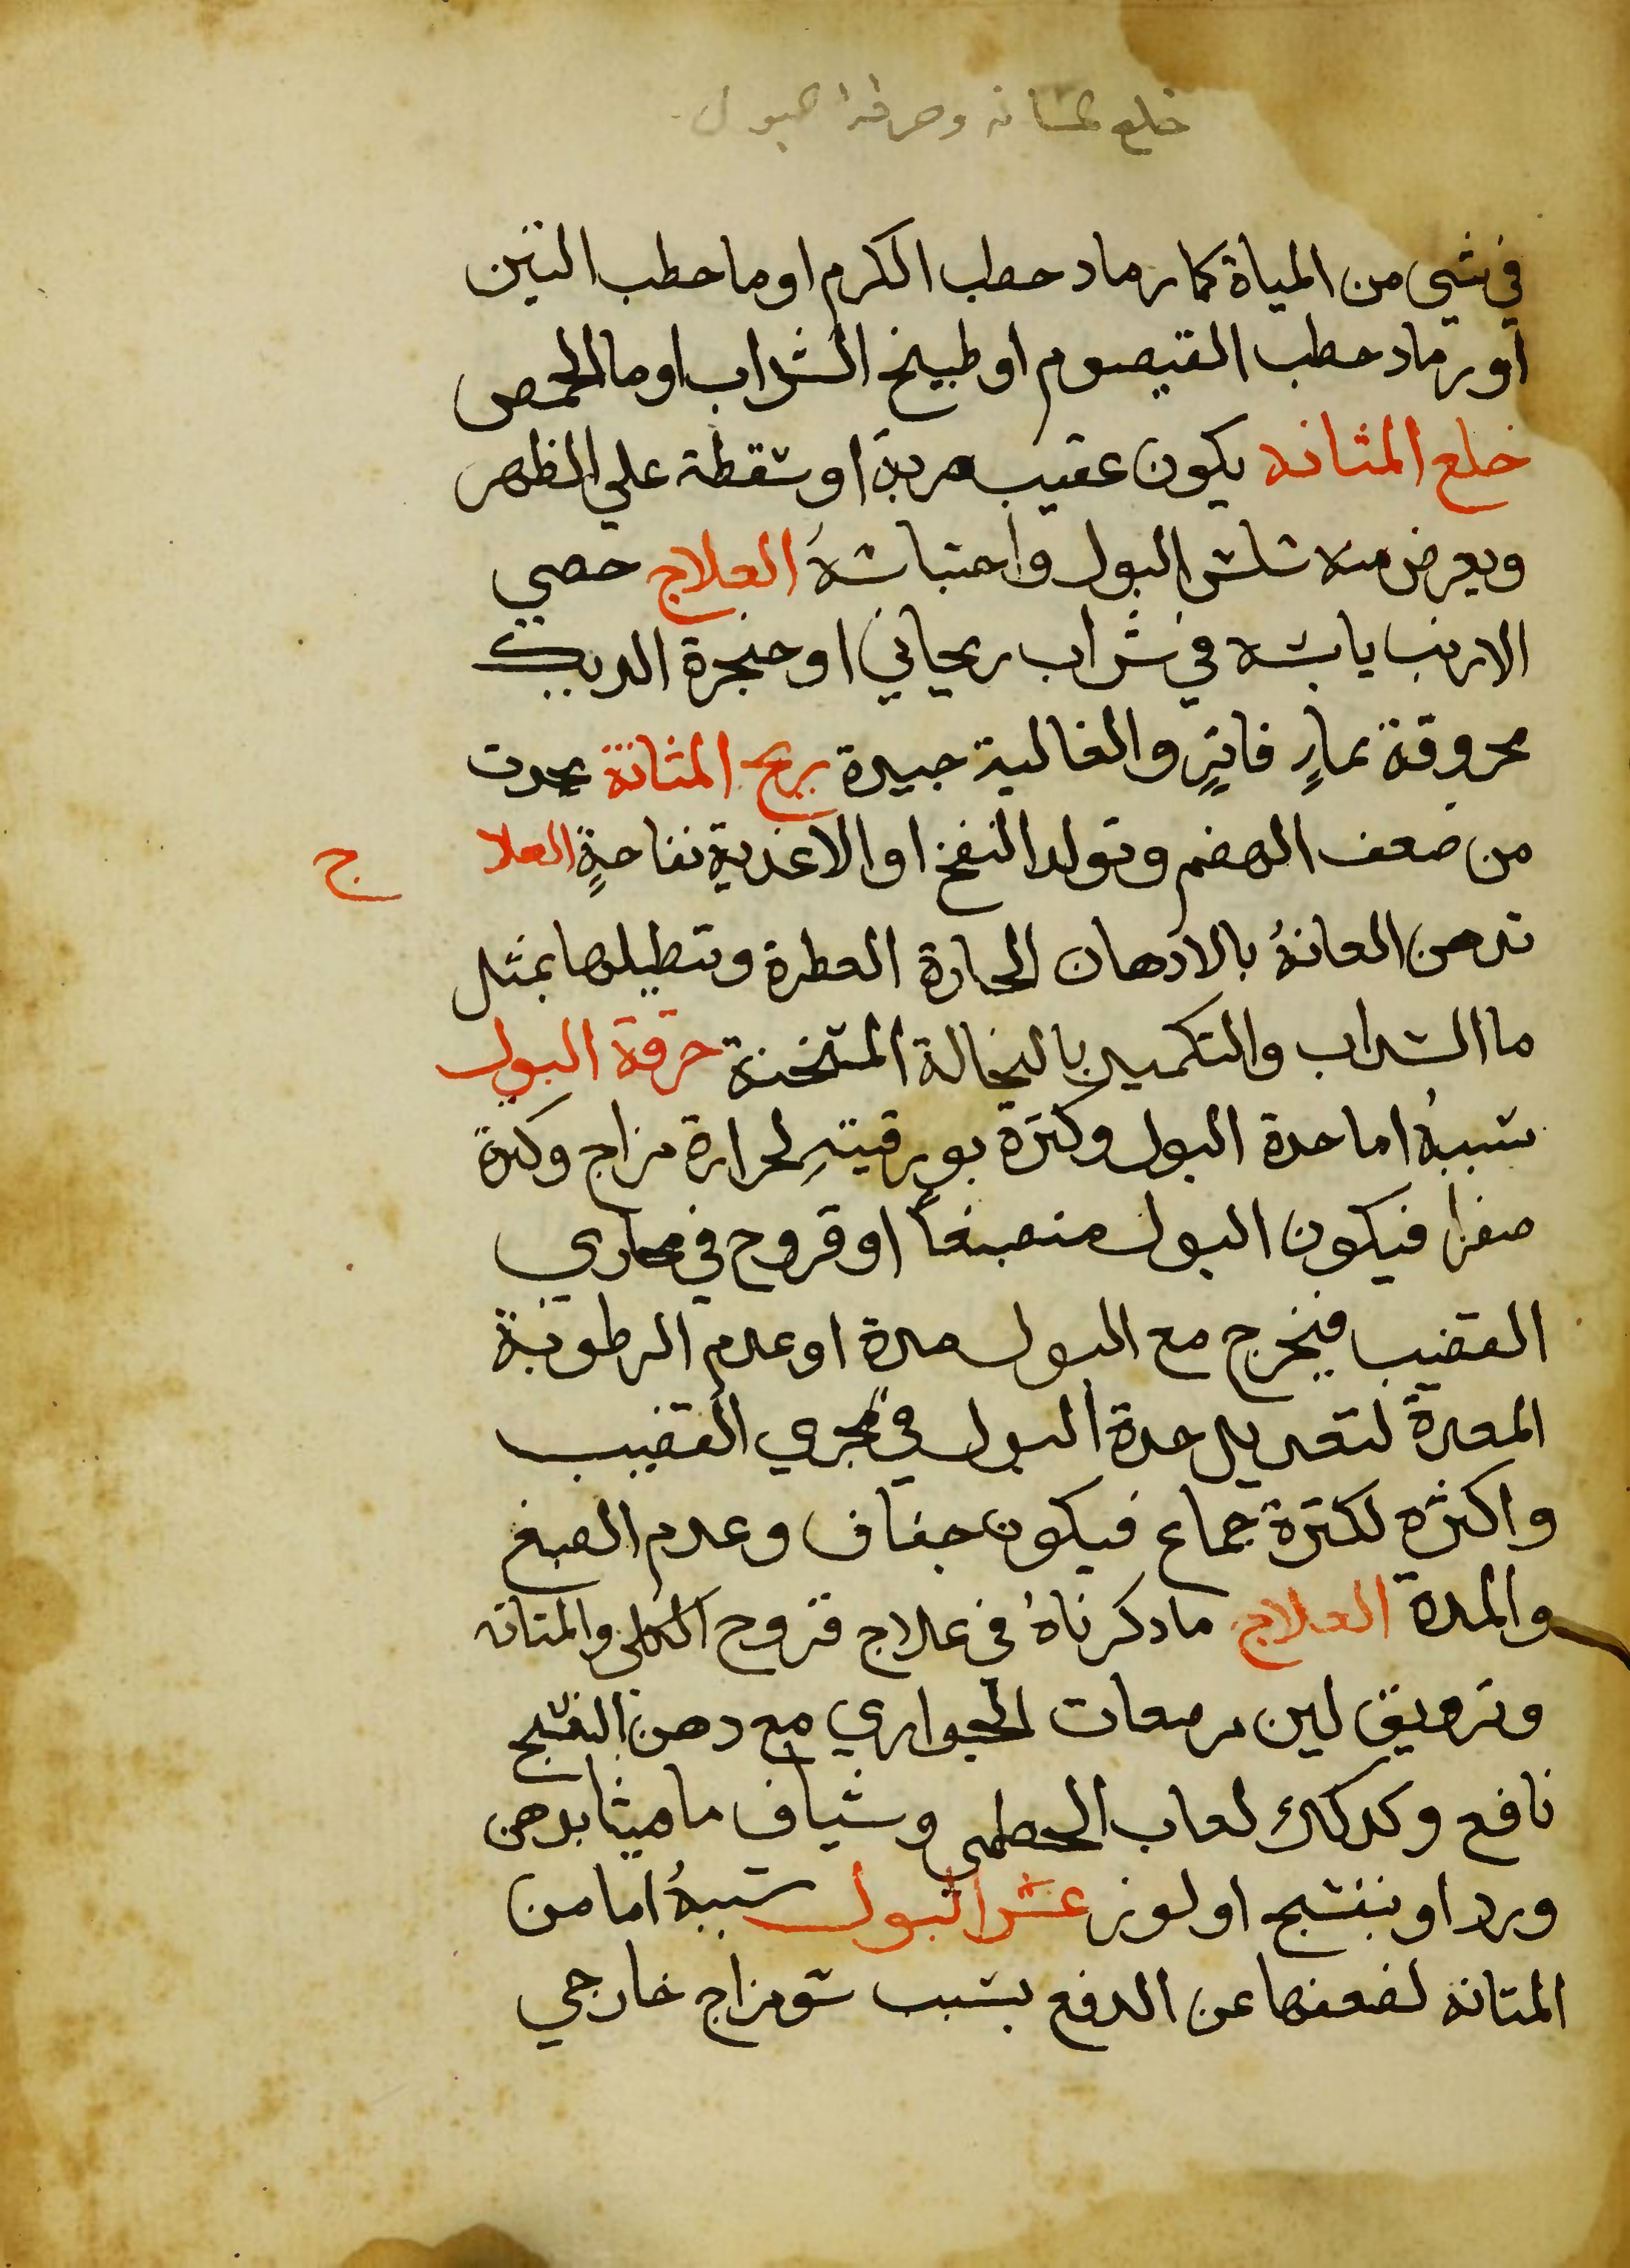 خلع المثانه وحرقة البول
في شي من المياة كما رماد حطب الكرم او ما حطب التين
او رماد حطب القيصوم او طبيخ السداب او ما الحمص
خلع المثانه يكون عقيب ضربة او سقطة علي الظهر
ويعرض منه سلس البول واحتباسهُ العلاج خصي
الارنب يابسه في شراب ريحاني او حنجرة الديك
محروقة بماءٍ فاترٍ والغالية جيدة ريح المثانة يحدث
من ضعف الهضم وتولد النفخ او الاغذية نفاخةٍ العلاج
تدهن العانةُ بالادهان الحارة العطرة وتنطيلها بمثل
ما السداب والتكميد بالنخالة المسخنة حرقة البول
سببهُ اما حدة البول وكثرة بورقيتهِ لحرارة مزاج وكثرة
صفرا فيكون البول منصبغاً او قروح في مجاري
القضيب فيخرج مع البول مدة او عدم الرطوبة
المعدة لتعديل حدة البول في مجري القضيب
واكثره لكثرة جماع فيكون جفاف وعدم الصبغ
والمدة العلاج ما دكرناهُ في علاج قروح الكلى والمثانه
وتزريق لبن مرضعات الجواري مع دهن البنفسج
نافع وكدلك لعاب الخطمي وشياف ماميثا بدهن
ورد او بنفسج او لوز عسر البول سببهُ اما من
المثانه لضعفها عن الدفع بسبب سو مزاج خارجي